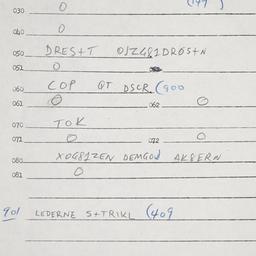 030 O (149 )
040 O
050 DRES+T OJZG81DRÖS+N
051 O
060 COP QT DSCR (900
061 O 062 O
070 TOK
071 O 072 O
080 XOG81ZEN DEMGOD AK8ERN
081 O
901 LEDERNE S+TRIKL (409